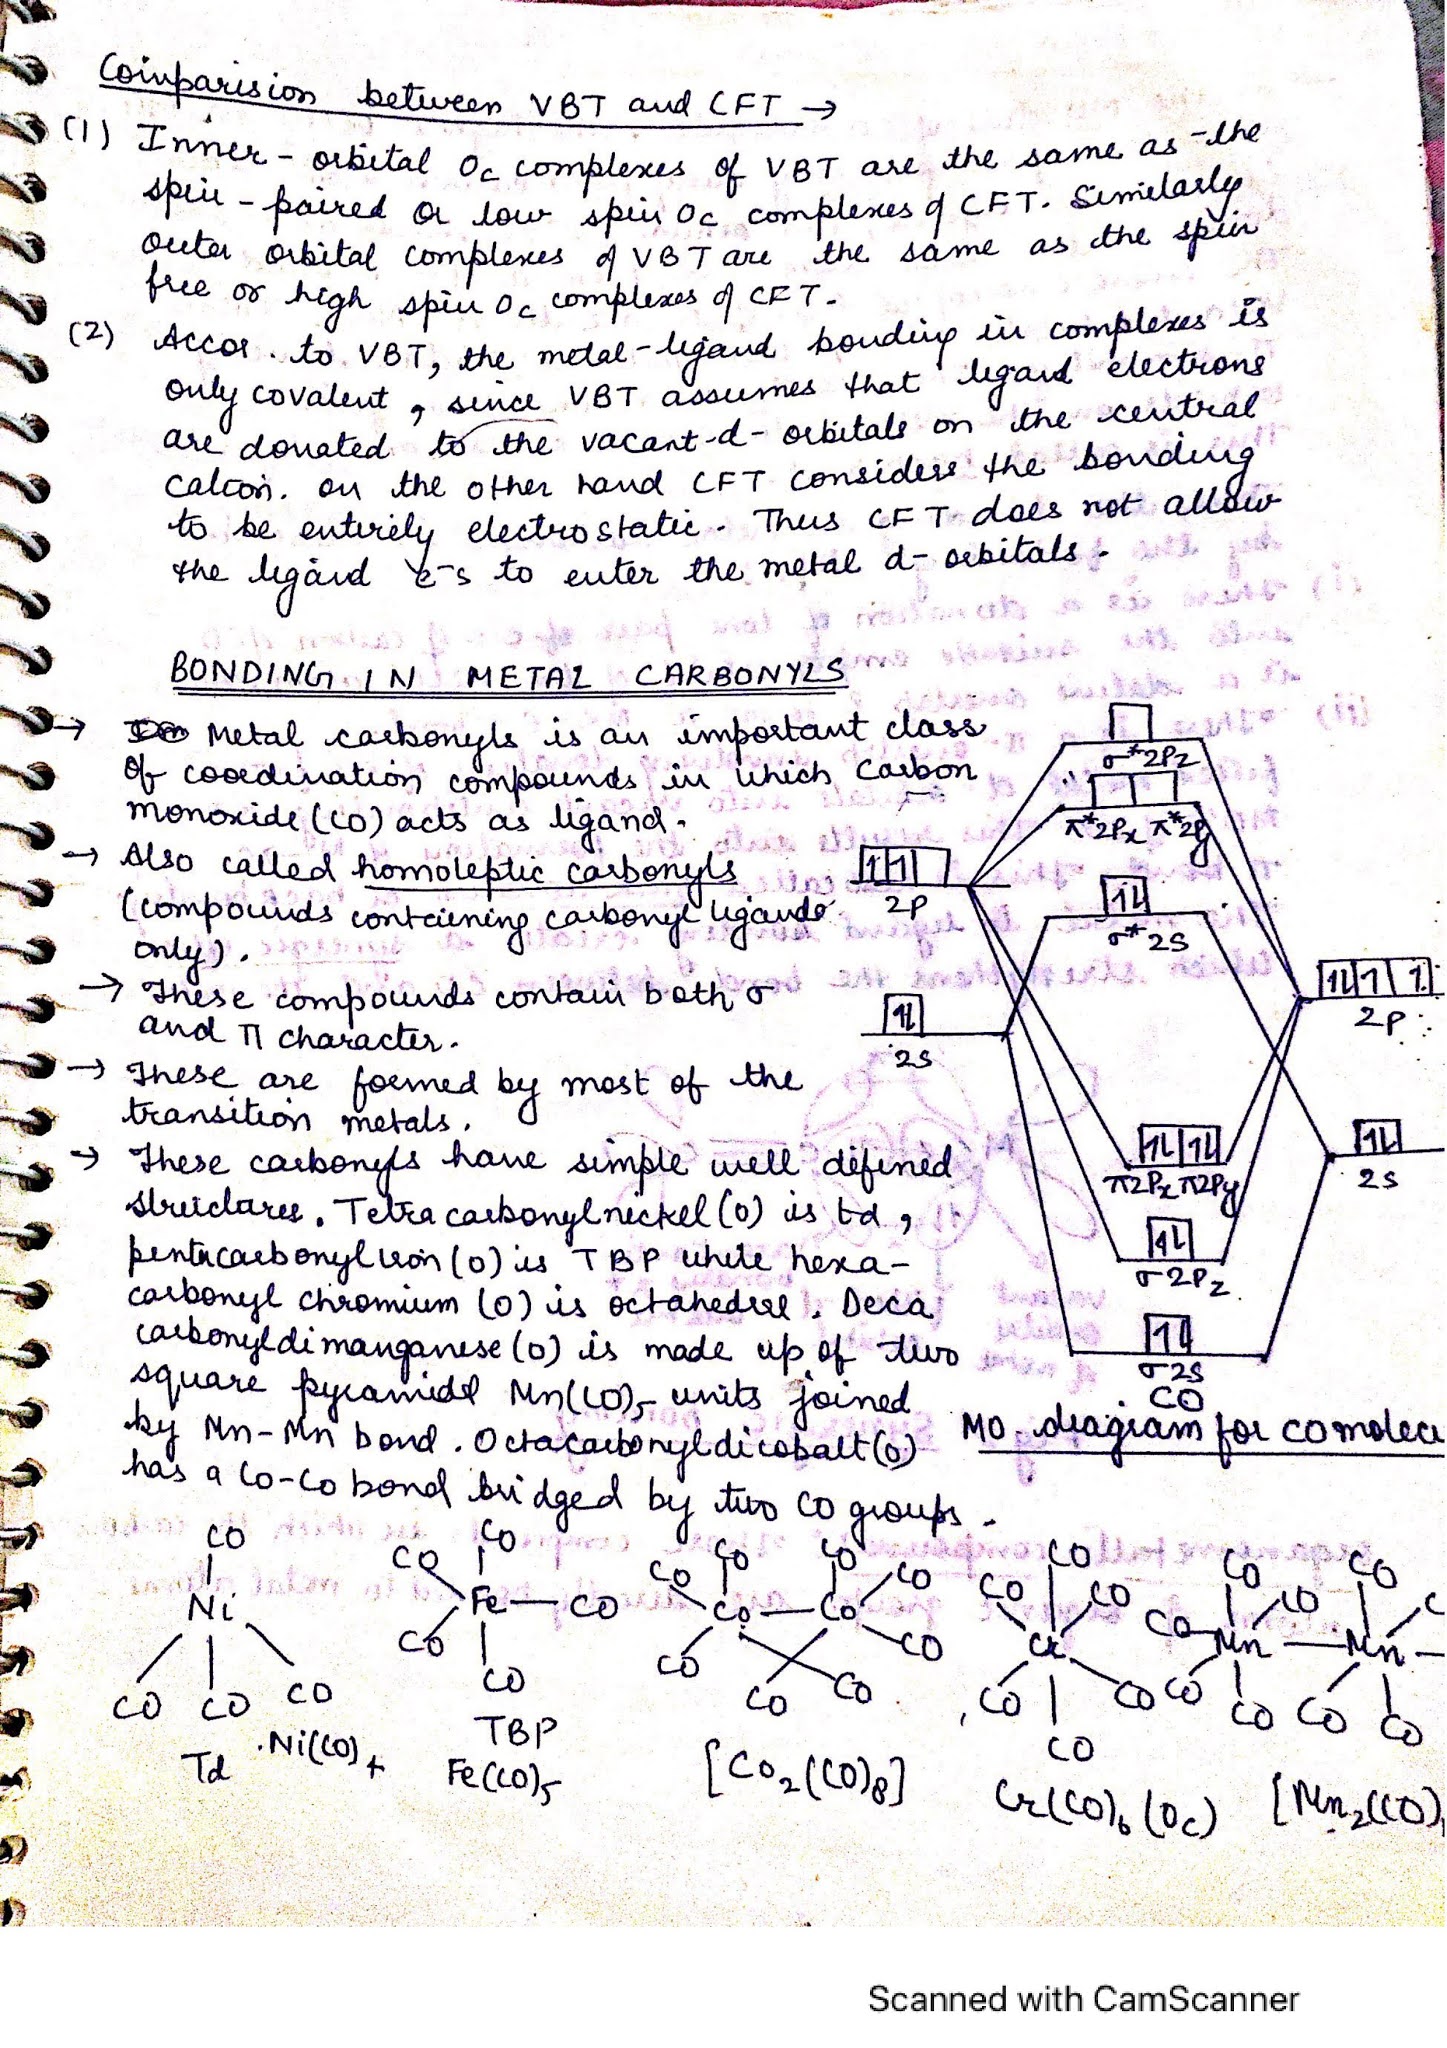 Comparision between VBT and CFT →
(1) Inner-orbital Oc complexes of VBT are the same as the
spin-paired or low spin Oc complexes of CFT. Similarly
outer orbital complexes of VBT are the same as the spin
free or high spin Oc complexes of CFT.
(2) Accor. to VBT, the metal-ligand bonding in complexes is
only covalent, since VBT assumes that ligand electrons
are donated to the vacant-d-orbitals on the central
cation. on the other hand CFT considers the bonding
to be entirely electrostatic. Thus CFT does not allow
the ligand e-s to enter the metal d-orbitals.
BONDING IN METAL CARBONYLS
→ Metal carbonyls is an important class
of coordination compounds in which Carbon
monoxide (CO) acts as ligand.
→ Also called homoleptic carbonyls
(compounds containing carbonyl ligands
only).
→ These compounds contain both σ
and π character.
→ These are formed by most of the
transition metals.
→ These carbonyls have simple well defined
structures. Tetracarbonylnickel(0) is td,
pentacarbonyl iron(0) is TBP while hexa-
carbonyl chromium (0) is octahedral. Deca
carbonyldimanganese(0) is made up of two
square pyramidal Mn(CO)5 units joined
by Mn-Mn bond. Octacarbonyldicobalt(0)
has a Co-Co bond bridged by two CO groups.
σ*2Pz
π*2Px π*2Py
2P
σ*2s
2P
2s
2s
π2Px π2Py
σ2Pz
σ2s
CO
MO. diagram for CO molecu
CO
Ni
CO CO CO
Td Ni(CO)4
CO CO
Fe — CO
CO CO
TBP
Fe(CO)5
CO CO CO CO
Co — Co
CO CO CO CO
[Co2(CO)8]
CO CO CO
Cr
CO CO CO
Cr(CO)6 (Oc)
CO CO CO C
CO Mn — Mn —
CO CO CO CO
[Mn2(CO)1
Scanned with CamScanner